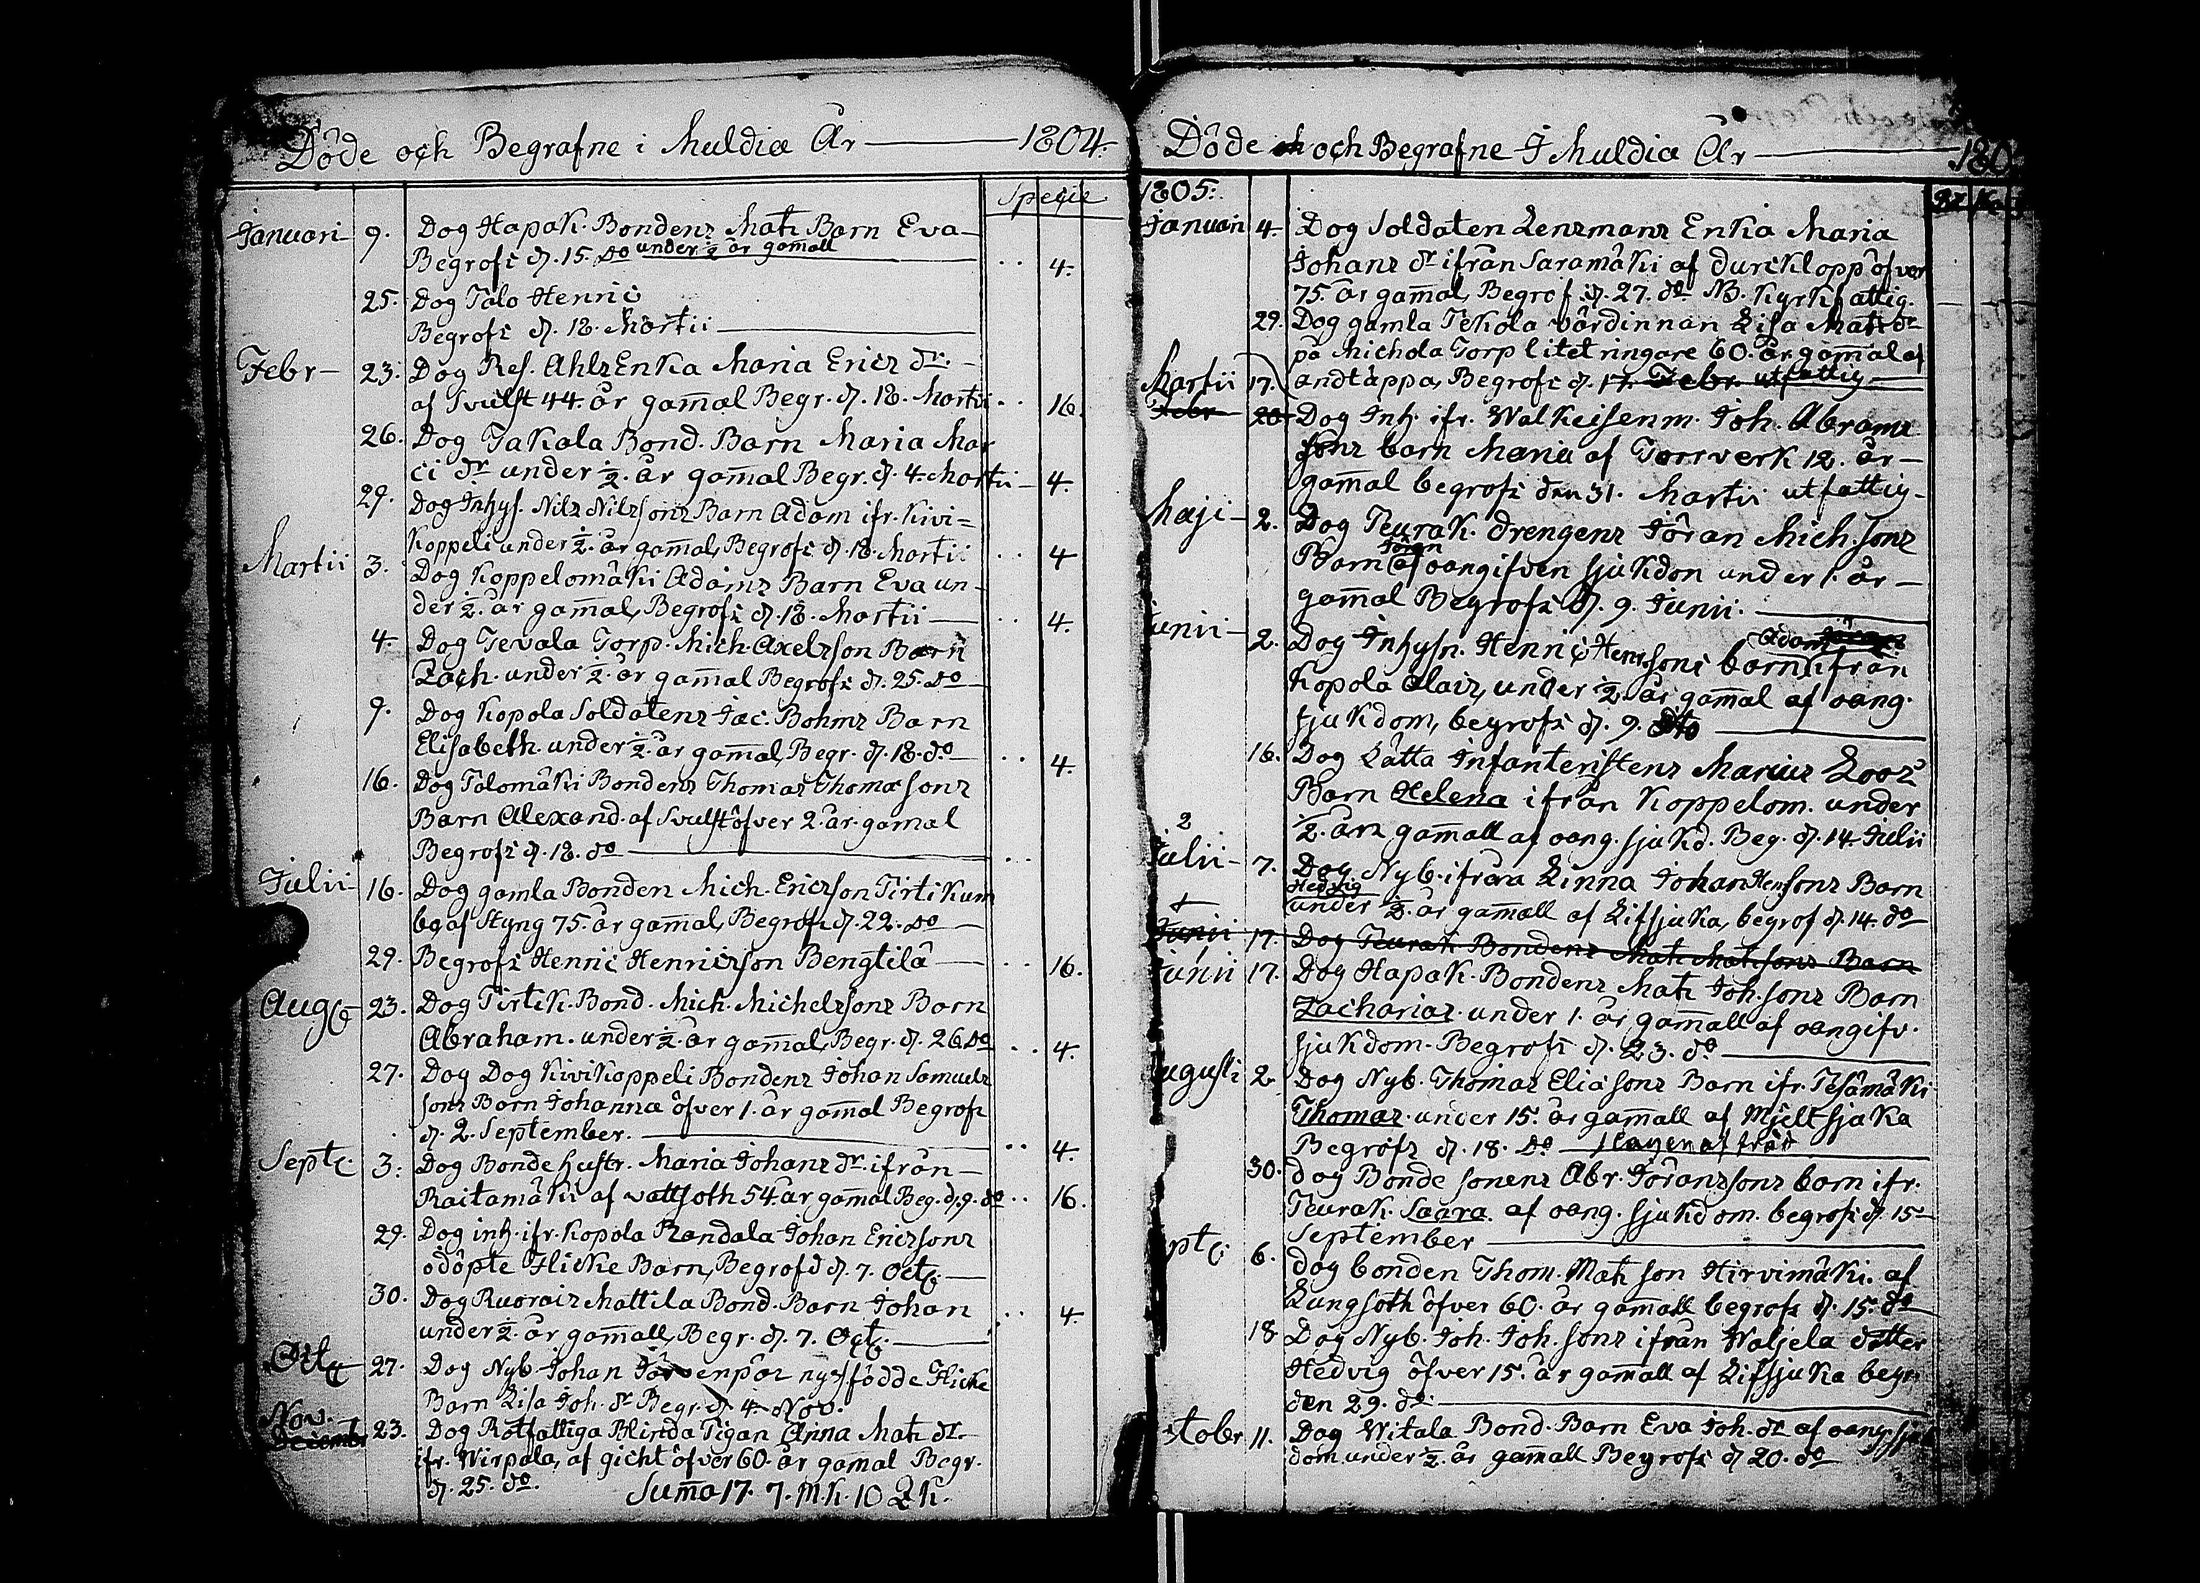 Döde och Begrafne i Muldia År — 1804.
Specie
Januari 9. Dog Hapak. Bondens Mats Barn Eva
Begrofs d. 15. do under ½ år gamall 4.
25. Dog Talo Henric
Begrofs d. 18. Martii
Febr 23. Dog Ref. Ahls Enka Maria Erics dr.
af Svulst 44. år gamal Begr. d. 18. Martii 16.
26. Dog Jakala Bond. Barn Maria Mar
ci dr under ½. år gamal Begr. d. 4. Martii 4.
29. Dog Inhys. Nils Nilssons Barn Adam ifr. Kivi=
koppeli under ½. år gamal, Begrofs d. 18. Martii 4
Martii 3. Dog Koppelomäki Adams Barn Eva un-
der ½. år gamal, Begrofs d. 18. Martii 4.
4. Dog Tevala Torp. Mich. Axelsson Barn
Zach. under ½. år gamal Begrofs d. 25. do
9. Dog Kopola Soldatens Jac. Bohms Barn
Elisabeth. under ½. år gamal, Begr. d. 18. do 4.
16. Dog Talomäki Bondens Thomas Thomæsons
Barn Alexand. af Svulst öfver 2. år. gamal
Begrofs d. 18. do
Julii 16. Dog gamla Bonden Mich. Ericsson Tirtikum
ba af Styng 75. år gamal, Begrofs d. 22. do
29. Begrofs Henric Henricsson Bengtilä 16.
Aug 23. Dog Tirtik. Bond. Mich. Michelssons Barn
Abraham. under ½. år gamal, Begr. d. 26. do 4.
27. Dog Dog Kivikoppeli Bondens Johan Samuels
sons Barn Johanna öfver 1. år gamal Begrofs
d. 2. September.
Sept. 3. Dog Bonde hustr. Maria Johans dr. ifrån 4.
Raitamäki af vattsoth 54. år gamal Beg. d. 9. do 16.
29. Dog inh. ifr. Kopola Randala Johan Ericssons
odöpte Flicke Barn, Begrofd d. 7. Oct.
30. Dog Ruorais Mattila Bond. Barn Johan 4.
under ½. år gamall, Begr. d. 7. Oct.
Oct. 27. Dog Nyb. Johan Järvenpäs nysfödde Flicke
Barn Lisa Joh. dr Begr. d. 4. Nov.
Nov. Decembr 23. Dog Rotfattiga Blinda Pigan Anna Mats dr.
ifr. Wirpala, af gicht öfver 60. år gamal Begr.
d. 25. do. Suma 17. 7. M.K. 10 QK.
Döde och och Begrafne I Muldia År — 180
1805.
Januari 4. Dog Soldaten Lensmans Enkia Maria
Johans dr ifrån Saramäki af durcklopp öfver
75. år gamal, Begrof d. 27. do NB. Kyrkfattig.
29. Dog gamla Tekola värdinnan Lisa Mats dr
på Michola Torp litet ringare 60. år gamal af
Martii 17. andtäppa, Begrofs d. 17. Febr. utfattig
Febr 20 Dog Inh. ifr. Walkeisenm. Joh. Abrams
sons barn Maria af Torrverk 12. år
gamal begrofs den 31. Martii utfattig
Maji 2. Dog Teurak. drengens Jöran Mich.sons
Barn Jöran af oangifven sjukdon under 1. år
gamal Begrofs d. 9. Junii.
unii 2. Dog Inhysn. Henric Henr.sons barn Adam ifrån
Kopola Alais, under ½. år gamal af oang.
sjukdom, begrofs d. 9. dto
16. Dog Lätta Infanteristens Marcus Loos
Barn Helena ifrån Koppelom. under
½. års gamall af oang. sjukd. Beg. d. 14. Julii
2
Julii 7. Dog Nyb. ifråra Linna Johan Hen.sons Barn
Hedvig
under ½. år gamall af Lifsjuka, begrof d. 14. do
Junii 17. Dog Teurak Bondens Mats Matssons Barn
Junii 17. Dog Hapak. Bondens Mats Joh.sons Barn
Zacharias. under 1. år gamall af oangifv.
sjukdom. Begrofs d. 23. do
ugusti 2. Dog Nyb. Thomas Eliæsons Barn ifr. Tesämäki
Thomas. under 15. år gamall af Mjeltsjuka
Begrofs d. 18. do slagen af träd
30. dog Bonde sonens Abr. Jöranssons barn ifr.
Teurak. Saara. af oang. sjukdom. begrofs d. 15
September
pt. 6. dog bonden Thom. Mats son Hirvimäki. af
Lungsoth öfver 60. år gamall begrofs d. 15. do
18 Dog Nyb. Joh. Joh.sons ifrån Walsela dotter
Hedvig öfver 15. år gamall af Lifsjuka begr.
den 29. do.
ctobr 11. Dog Witala Bond. Barn Eva Joh. dr af oang. sjuk
dom under ½. år gamall Begrofs d 20. do